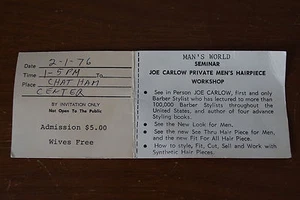 Date 2-1-76
Time 1-5 PM To
Place CHATHAM
CENTER
BY INVITATION ONLY
Not Open To The Public
Admission $5.00
Wives Free
MAN'S WORLD
SEMINAR
JOE CARLOW PRIVATE MEN'S HAIRPIECE
WORKSHOP
• See in Person JOE CARLOW, first and only
Barber Stylist who has lectured to more than
100,000 Barber Stylists throughout the
United States, and author of four advance
Styling books.
• See the New Look for Men.
• See the new See Thru Hair Piece for Men,
and the new Fit For All Hair Piece.
• How to style, Fit, Cut, Sell and Work with
Synthetic Hair Pieces.